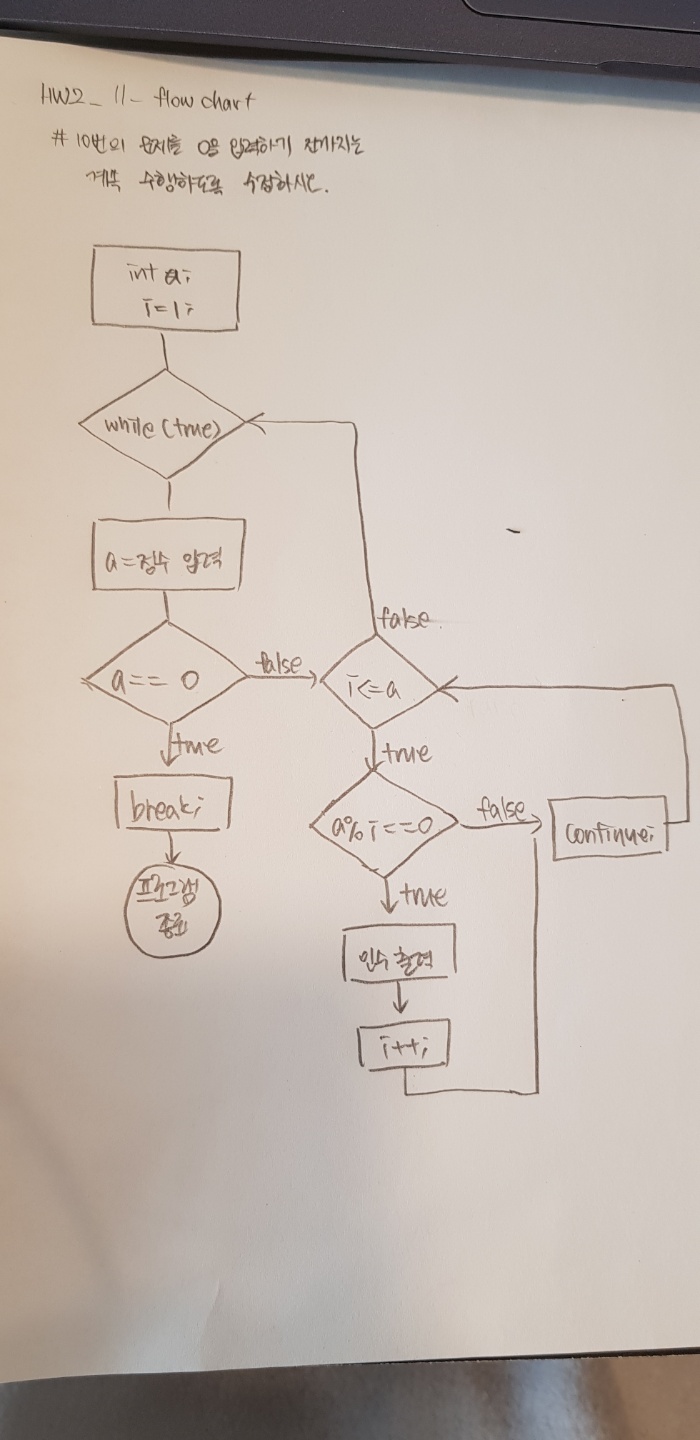 HW2_11- flow chart
# 10번의 문제를 0을 입력하기 전까지는
계속 수행하도록 수정하시오.
int a;
i=1;
while (true)
a=정수 입력
a== 0
false
true
break;
프로그램
종료
false.
i<=a
true
a%i==0
false
continue;
true
인수 출력
i++;